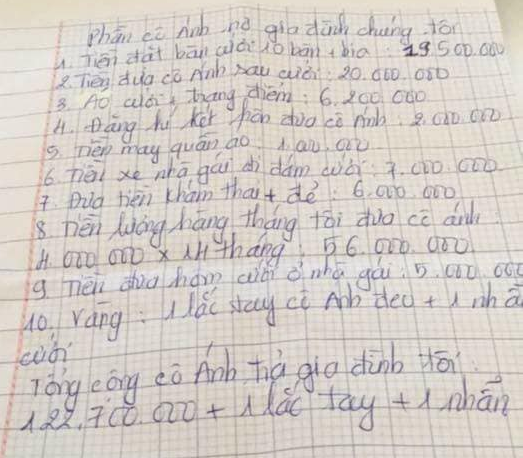 Phần cô Ánh nợ gia đình chúng tôi
1. Tiền đặt bàn cưới 10 bàn + bia : 19 500.000
2. Tiền đưa cô Ánh sau cưới : 20.000.000
3. Áo cưới + trang điểm : 6.200.000
4. Đăng kí kết hôn đưa cô Ánh : 2.000.000
5. Tiền may quần áo : 1.000.000
6. Tiền xe nhà gái đi đám cưới : 7.000.000
7. Đưa tiền khám thai + đẻ : 6.000.000
8 Tiền lương hàng tháng tôi đưa cô ánh :
4.000 000 x 14 tháng : 56.000.000
9. Tiền đưa hôm cưới ở nhà gái : 5.000.000
10. Vàng : 1 lắc tay cô Ánh đeo + 1 nhẫ
cưới
Tổng cộng cô Ánh trả gia đình tôi :
122.700.000 + 1 lắc tay + 1 nhẫn